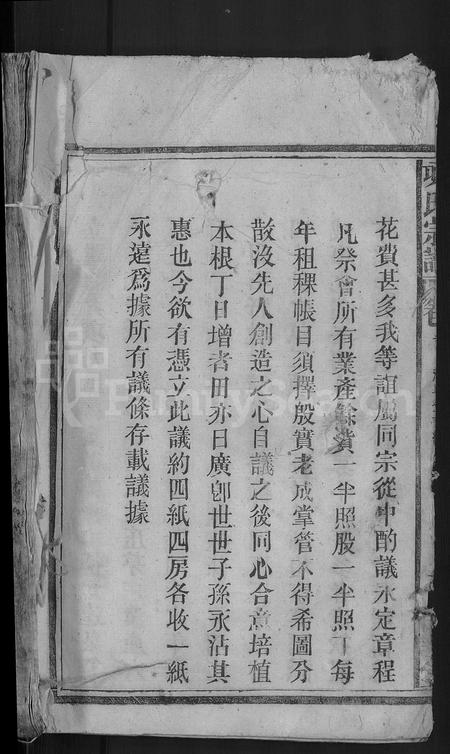 花費甚多我等誼屬同宗從中酌議永定章程
凡祭會所有業產餘費一半照股一半照丁每
年租稞帳目須擇殷實老成掌管不得希圖分
散沒先人創造之心自議之後同心合意培植
本根丁日增者田亦日廣卽世世子孫永沾其
惠也今欲有憑立此議約四紙四房各收一紙
永遠爲據所有議條存載議據
氏宗譜
FamilySearch